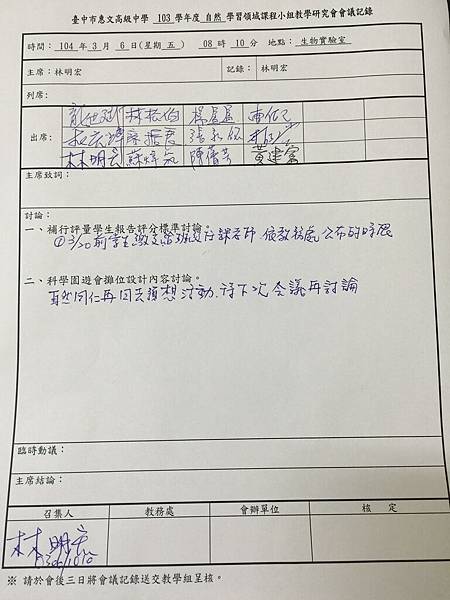 臺中市惠文高級中學 103 學年度 自然 學習領域課程小組教學研究會會議記錄
時間：104 年 3 月 6 日(星期 五 ) 08 時 10 分 地點：生物實驗室
主席：林明宏 記錄：林明宏
列席:
出席:
林明宏 陳蕾芳 黃建富
主席致詞：
討論：
一、補行評量學生報告評分標準討論。
前學生繳交給 任課老師 依教務處公布的時程
二、科學園遊會攤位設計內容討論。
自然同仁再回去預想活動、待下次會議再討論
臨時動議：
主席結論：
召集人 教務處 會辦單位 核 定
林明宏
※ 請於會後三日將會議記錄送交教學組呈核。